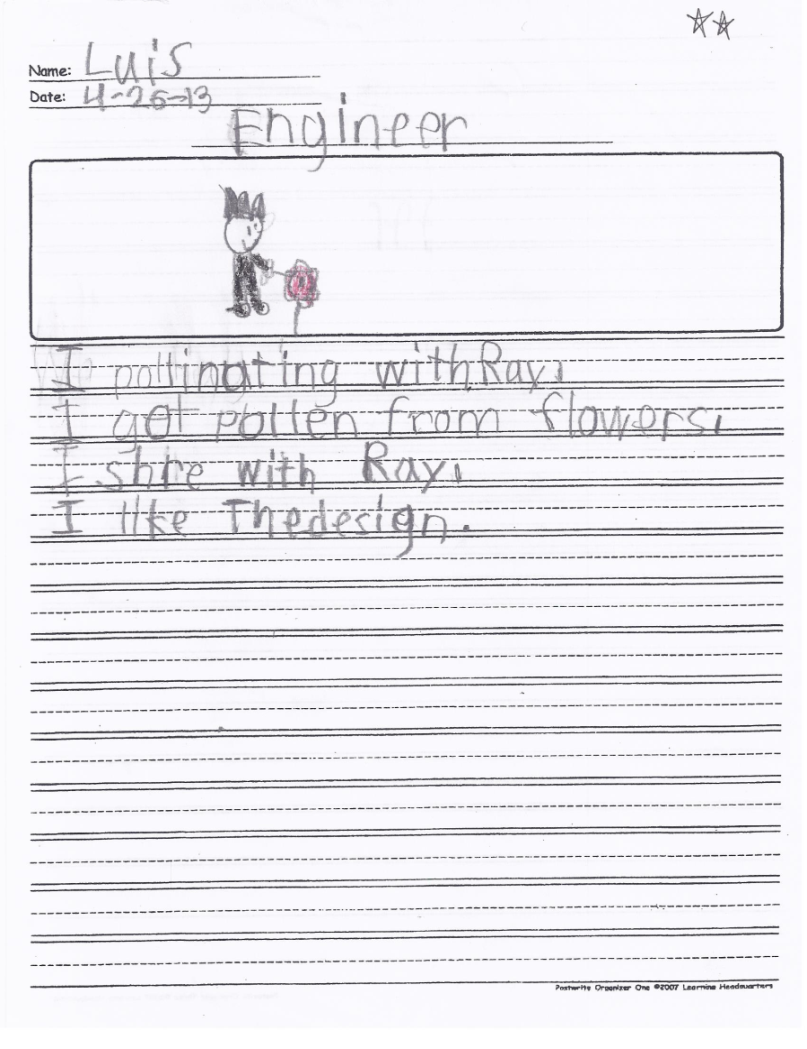 Name: Luis
Date: 4-25-13
Engineer
I pollinating withRay.
I got pollen from flowers.
I shre with Ray.
I like Thedesign.
Postwrite Organizer One ©2007 Learning Headquarters